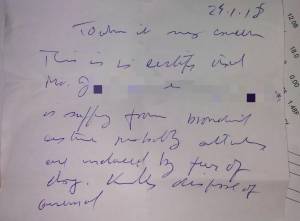 29.1.18
To whom it may concern
This is to certify that
Mr. J
is suffering from bronchial
asthma probably attacks
are induced by fur of
dog. Kindly dispose of
animal